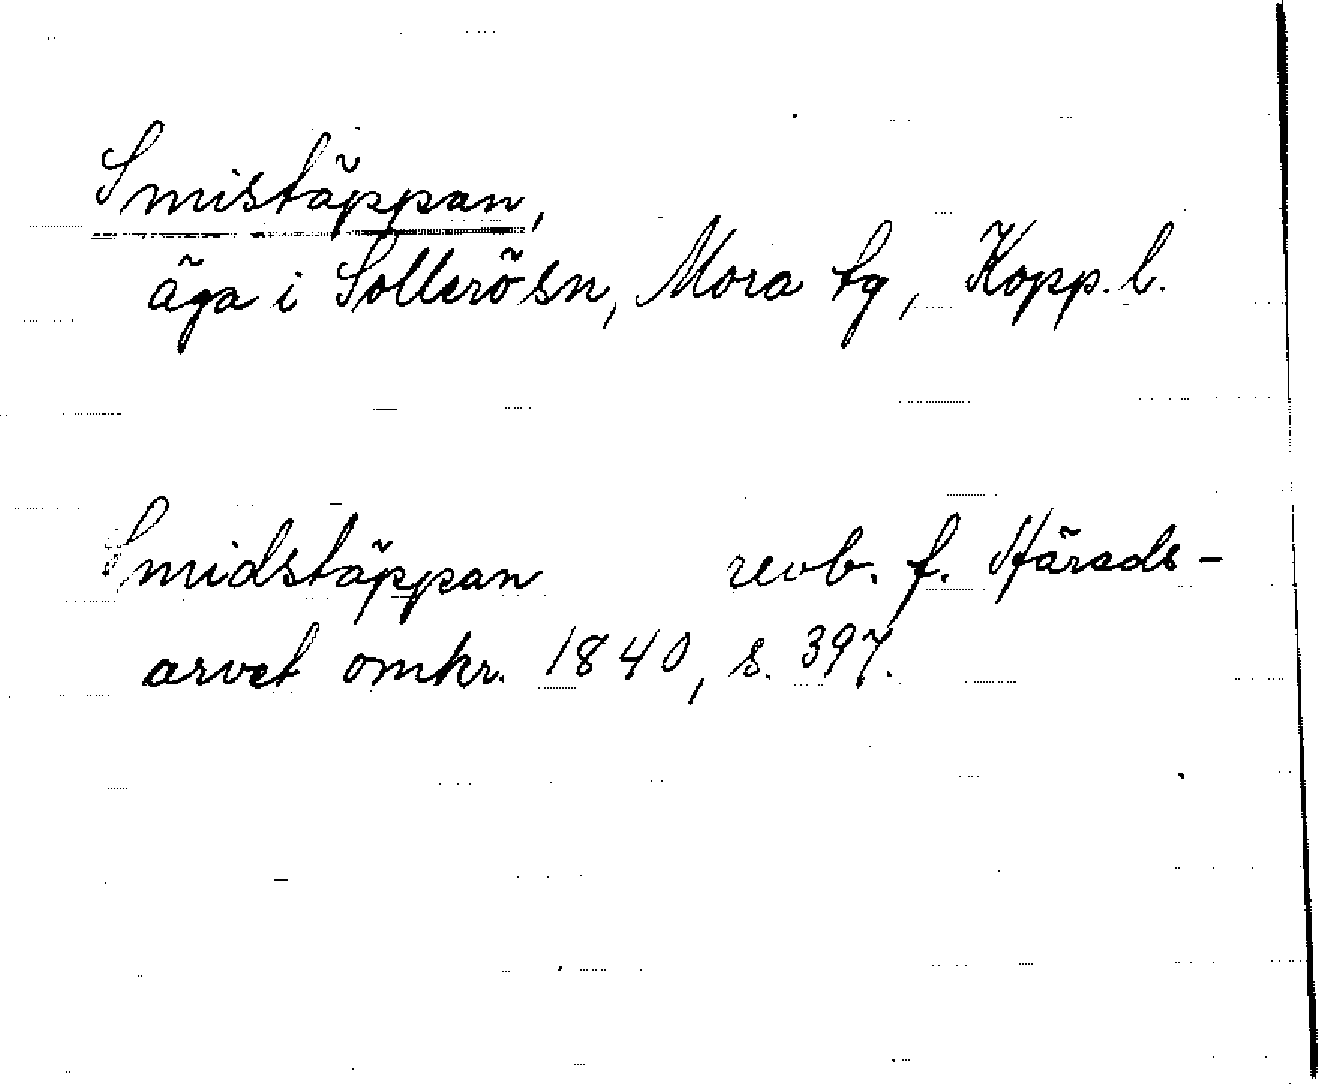 Smistäppan,
äga i Sollerö sn, Mora tg, Kopp. l.
Smidstäppan revb. f. Härads-
arvet omkr. 1840, s. 397.